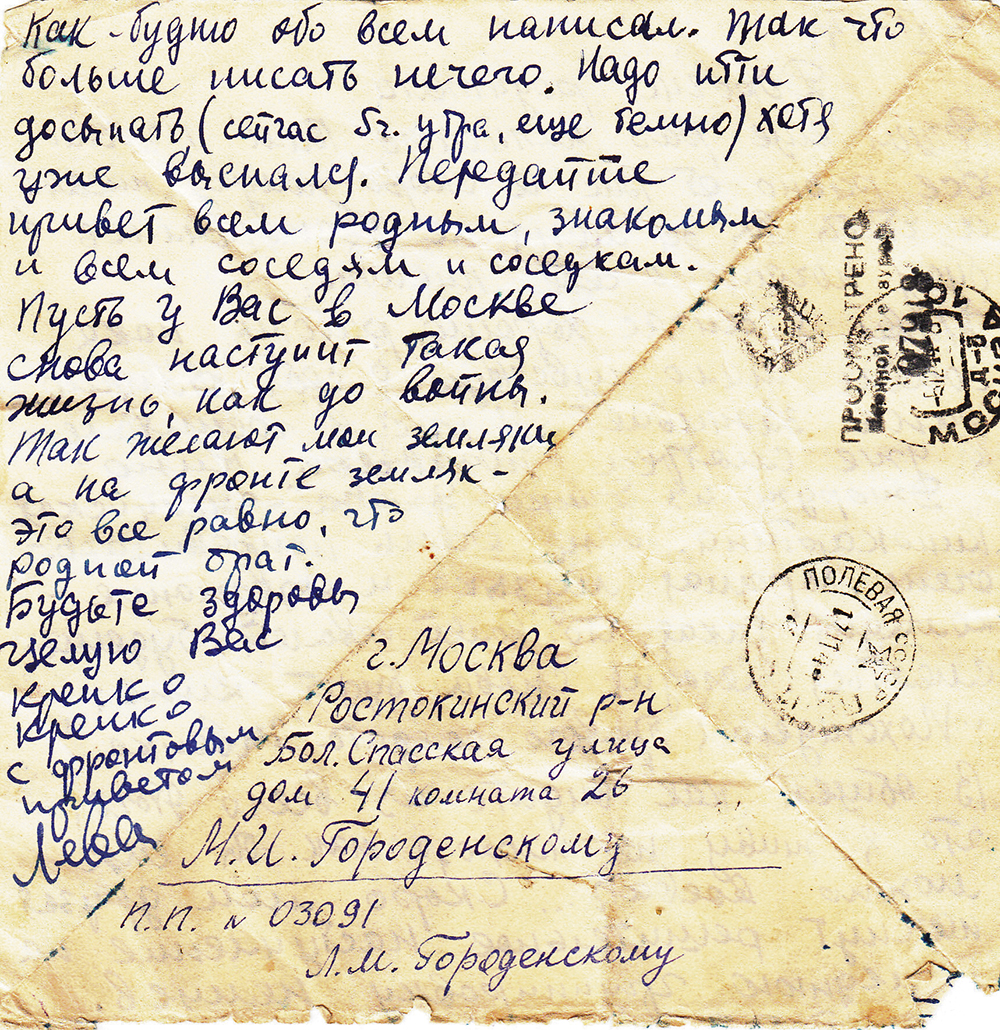 Как-будто обо всем написал. Так что
больше писать нечего. Надо итти
досыпать, (сейчас 5ч. утра, еще темно) хотя
уже выспался. Передайте
привет всем родным, знакомым
и всем соседям и соседкам.
Пусть у Вас в Москве
снова наступит такая
жизнь, как до войны.
Так желают мои земляки
а на фронте земляк –
это все равно, что
родной брат.
Будьте здоровы
Целую Вас
крепко
крепко
с фронтовым
приветом
Лева
г. Москва
Ростокинский р-н
Бол. Спасская улица
дом 41 комната 26
М.И. Городенскому
П.П. N 03091
Л.М. Городенскому
ПРОСМОТРЕНО
Военной Цензурой
07918
МОСКВА
ПОЛЕВАЯ
СССР